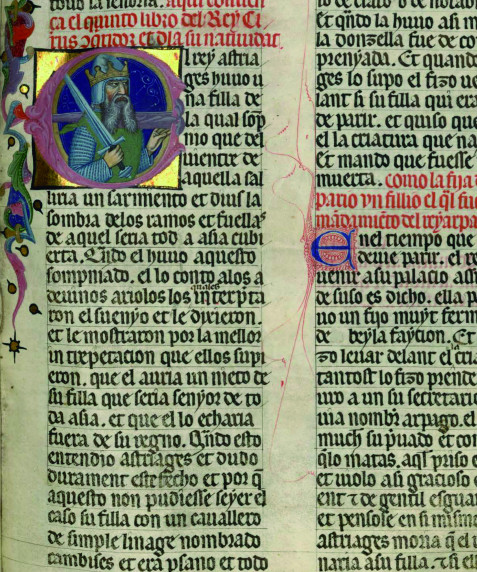 toda la senoria. aqui comien
ça el quinto libro del Rey Ci
rus açaidor et dla su natiuidat.
El rey astria
ges huuo u
na filla de
la qual sop
mo que del
uientre de
aquella sal
liria un sarmiento et dius la
sombra delos ramos et fuellas
de aquel seria tod a asia cubi
erta. Qndo el huuo aquesto
sompniado. el lo conto alos a
deuinos ariolos los quales int̃rpta
ron el suenyo et le dixieron.
et le mostraron por la mellor
intrepetacion que ellos supi
eron. que el auria un nieto de
su filla que seria senyor de to
da asia. et que el lo echaria
fuera de su regno. Qndo esto
entendio astriages et dubdo
durament este fecho et por q̃
aquesto non pudiesse seyer el
caso su filla con un cauallero
de simple linage nombrado
cambises et era psano et todo
et qndo la huuo asi m
la donzella fue de co
prenyada. Et quand
ges lo supo el fizo ue
lant si su filla qui era
de parir. et quiso que
el la criatura que na
et mando que fuesse
muerta. como la fija d
pario vn fillio el ql fue
madamieto del rey arpa
En el tiempo que
deuie parir. el re
uenir a su palacio assi
de suso es dicho. ella p
rio un fijo muyt ferm
de beyla fayçion. Et
zo leuar delant el la cria
tantost lo fizo prende
uro a un su secretario
uia nombr arpago. el
much su puado et con
qlo matas. aql priso e
et uiolo asi gracioso e
ent τ de gentil esguar
et pensose en si misme
astriages moria q el r
naria asu filla. τ si ell